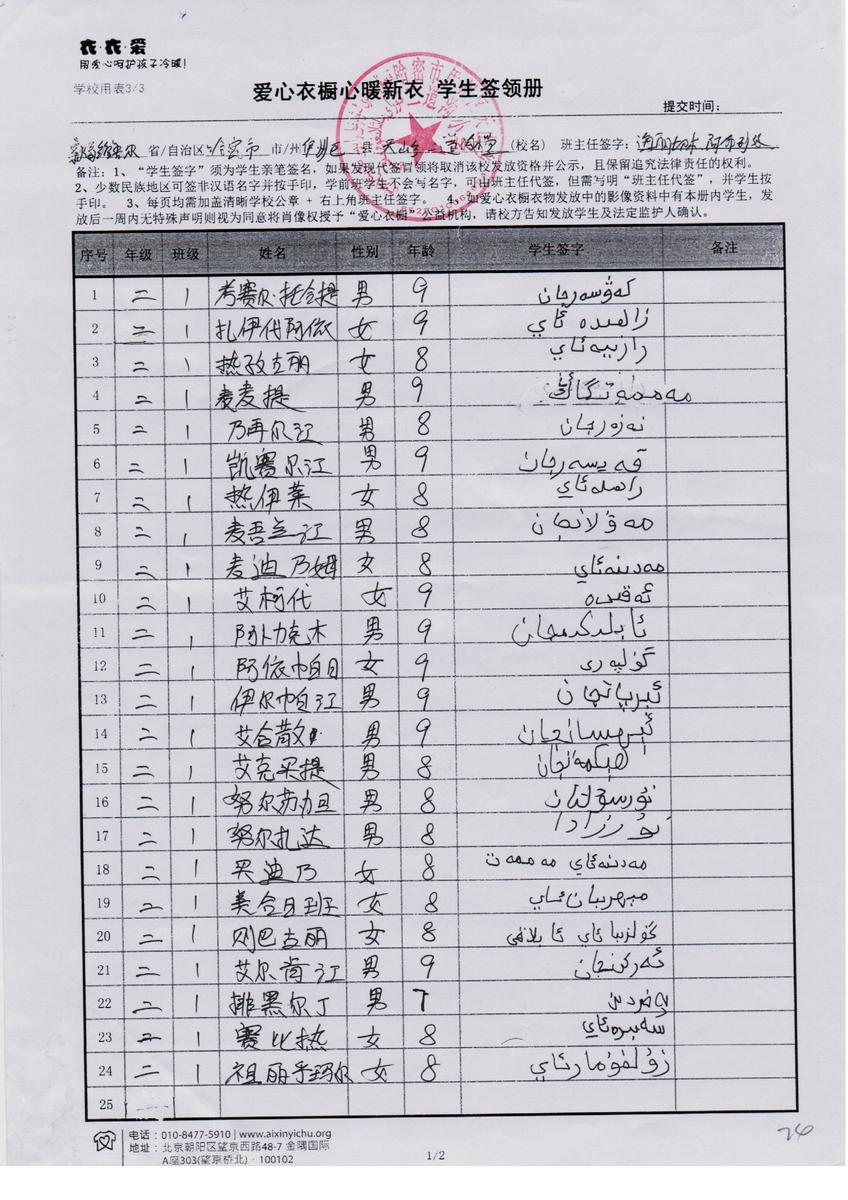 衣·衣·爱
用爱心呵护孩子冷暖!
学校用表3/3
爱心衣橱心暖新衣 学生签领册
提交时间:
省/自治区 哈密市 市/州 伊吾 县 (校名) 班主任签字:
备注: 1、 “学生签字” 须为学生亲笔签名, 如果发现代签冒领将取消该校发放资格并公示, 且保留追究法律责任的权利。
2、少数民族地区可签非汉语名字并按手印, 学前班学生不会写名字, 可由班主任代签, 但需写明 “班主任代签”, 并学生按
手印。 3、每页均需加盖清晰学校公章 + 右上角班主任签字。 4、如爱心衣橱衣物发放中的影像资料中有本册内学生, 发
放后一周内无特殊声明则视为同意将肖像权授予 “爱心衣橱” 公益机构, 请校方告知发放学生及法定监护人确认。
序号 年级 班级 姓名 性别 年龄 学生签字 备注
1 二 1 考赛尔·托合提 男 9 كەۋسەرجان
2 二 1 扎伊代阿依 女 9 زاھىدە ئاي
3 二 1 热孜古丽 女 8 رازىيەئاي
4 二 1 麦麦提 男 9
5 二 1 乃再尔江 男 8 نەزەرجان
6 二 1 凯赛尔江 男 9 قەيسەرجان
7 二 1 热伊莱 女 8 راھىلەئاي
8 二 1 麦吾兰江 男 8 مەۋلانجان
9 二 1 麦迪乃姆 女 8 مەدىنەئاي
10 二 1 艾柯代 女 9 ئەقىدە
11 二 1 阿卜力克木 男 9 ئابلىكىمجان
12 二 1 阿依帕日 女 9 گۈلپەرى
13 二 1 伊尔帕江 男 9 ئىرپانجان
14 二 1 艾合散 男 9 ئېھسانجان
15 二 1 艾克买提 男 8 ھېكمەتجان
16 二 1 努尔苏力旦 男 8 نۇرسۇلتان
17 二 1 努尔扎达 男 8 نۇرزادا
18 二 1 买迪乃 女 8 مەدىنەئاي مەممەت
19 二 1 美合日班 女 8 مېھرىبانئاي
20 二 1 则巴古丽 女 8 گۈلزىبا ئاي
21 二 1 艾尔肯江 男 9 ئەركىنجان
22 二 1 排黑尔丁 男 7
23 二 1 赛比热 女 8 سەبىرەئاي
24 二 1 祖丽乎玛尔 女 8 زۇلفۇمارئاي
25
电话: 010-8477-5910 | www.aixinyichu.org
地址: 北京朝阳区望京西路48-7 金隅国际
A座303(望京桥北) · 100102
1/2
24